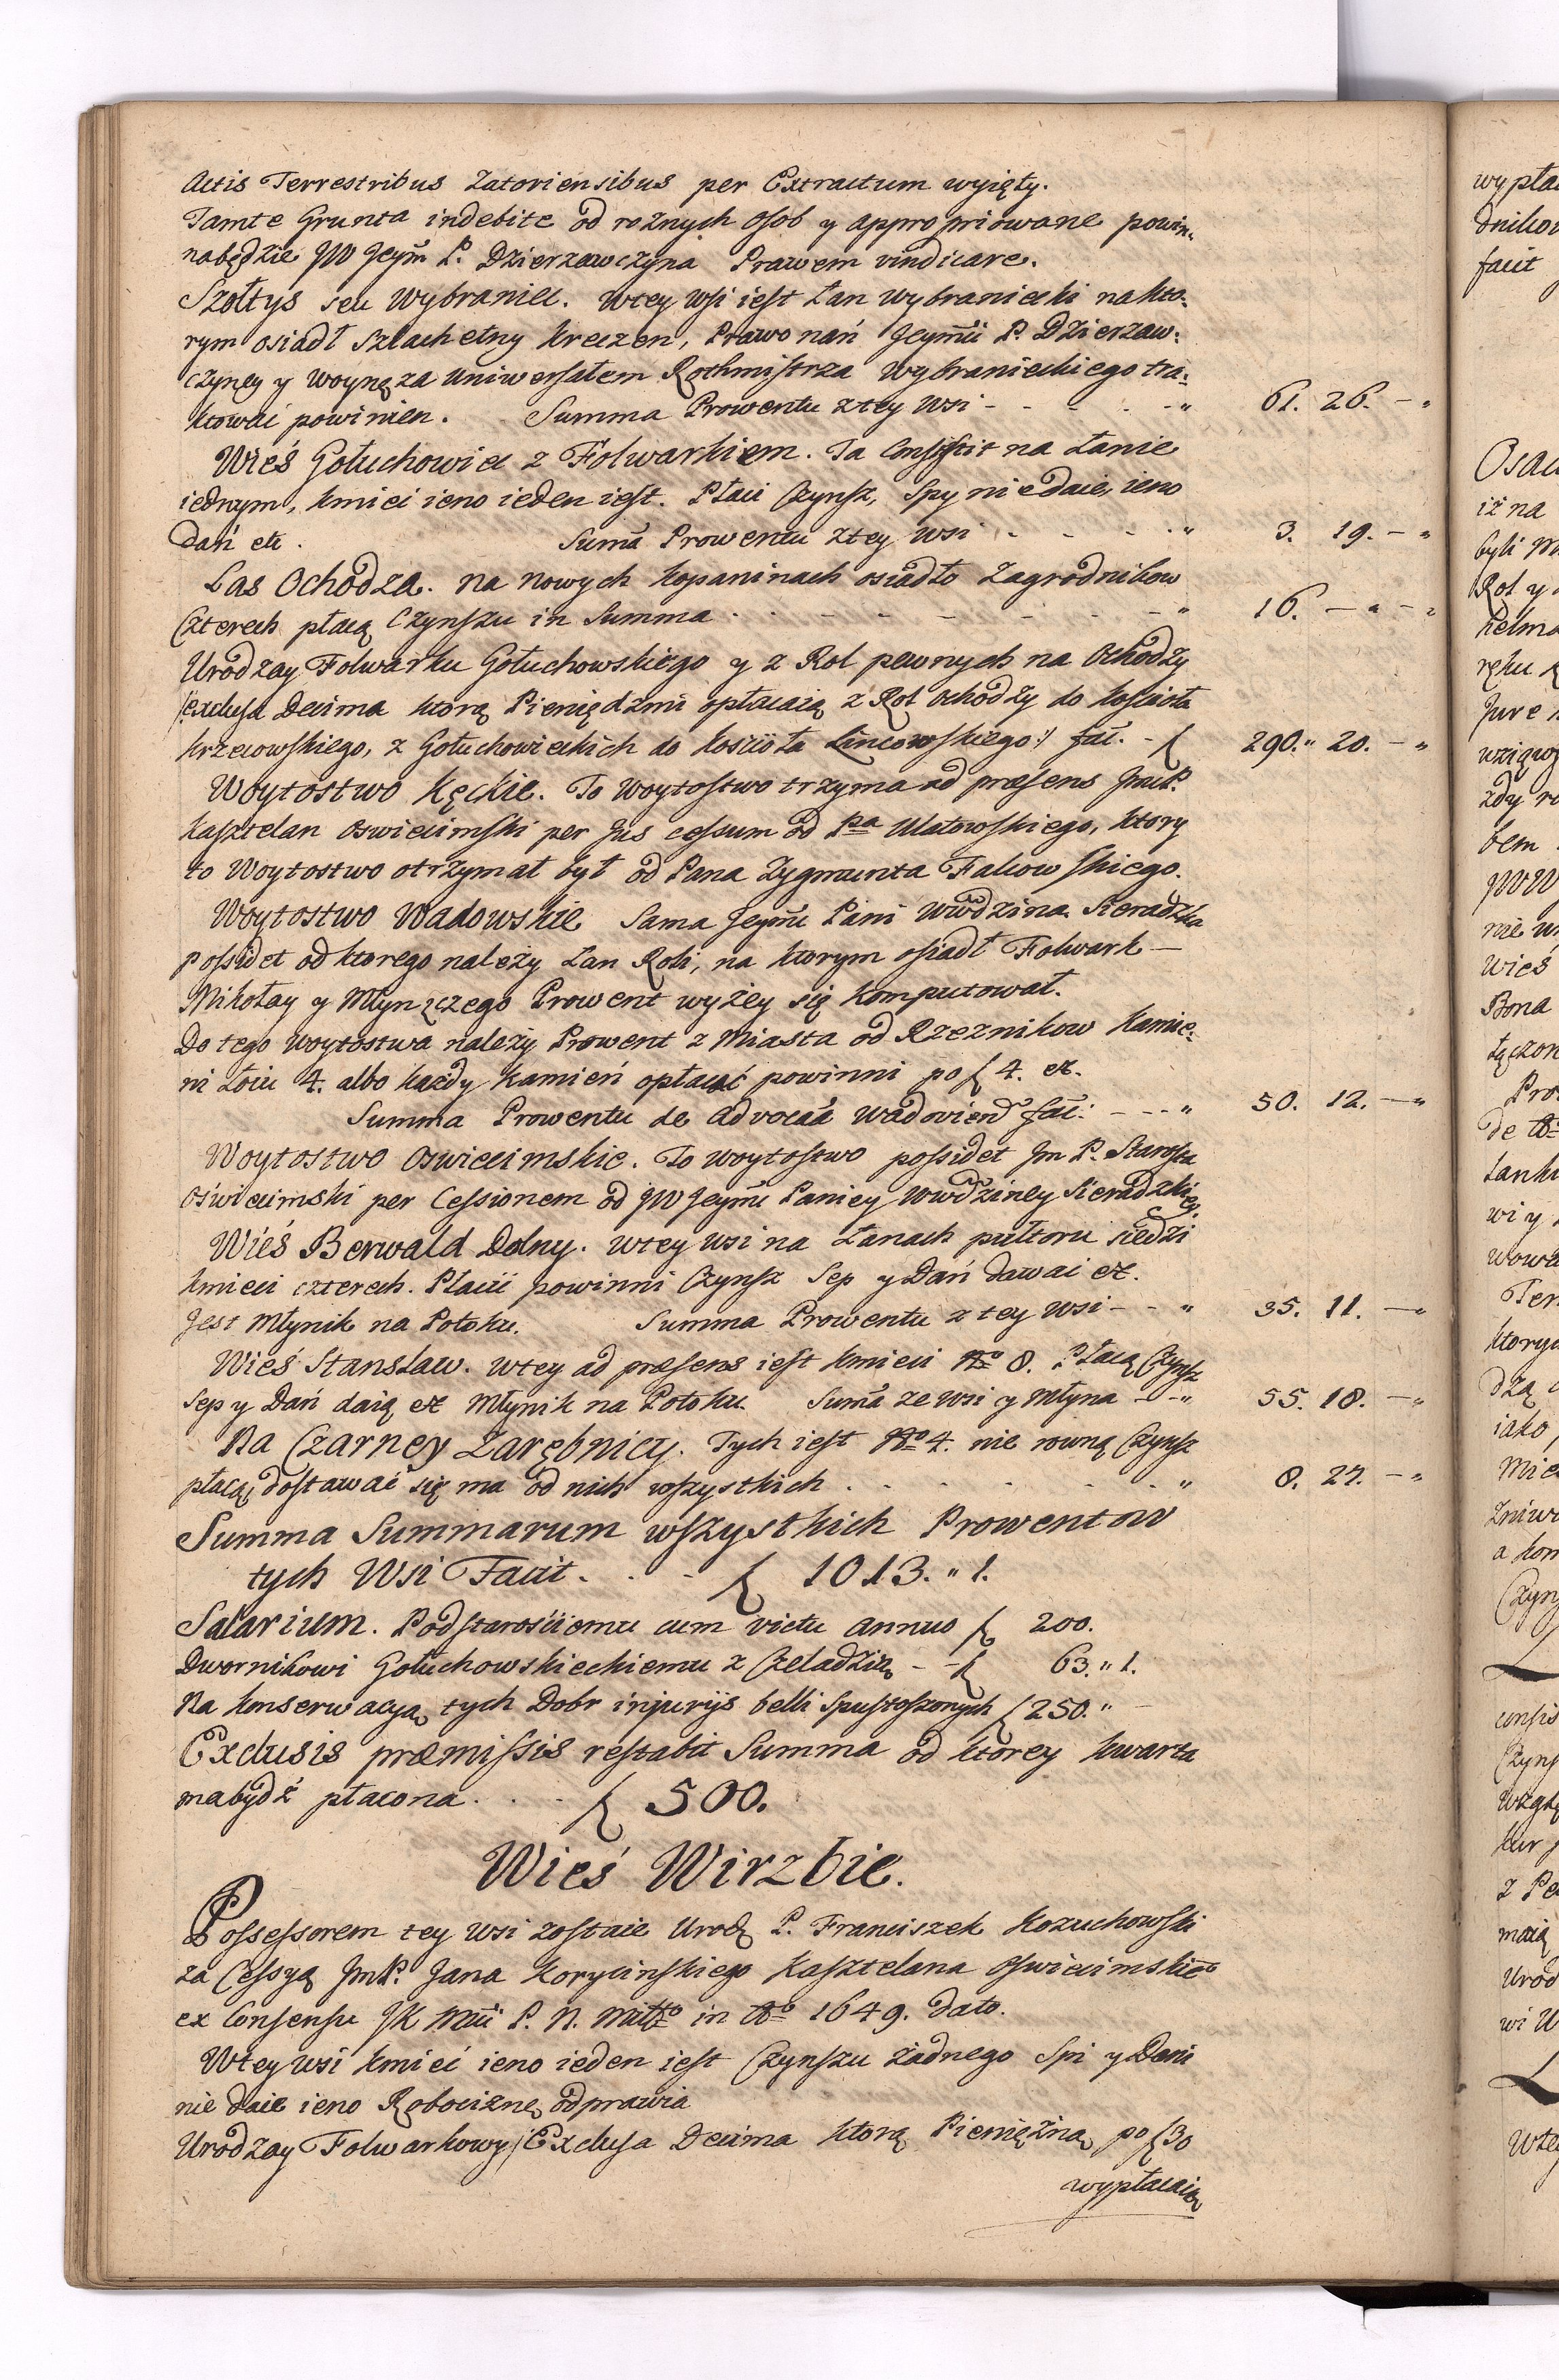 Actis Terrestribus Zatoriensibus per Extractum wyięty.
Tamte Grunta indebite od roznych Osob y appropriowane powin„
nabędzie JW Jeym̃ P. Dzierzawczyna Prawem vindicare.
Szołtys seu Wybraniec. Wtey Wsi iest Łan Wybraniecki nakto„
rym osiadł Szlachetny Kreczen, Prawo nań Jeymci P. Dzierzaw„
czyney y Woynę za Uniwersałem Rothmistrza Wybranieckiego tra„
ktować powinien. Summa Prowentu ztey Wsi - - - - „ 61. 26. - „
Wieś Gołuchowiec z Folwarkiem. Ta Consistit na Łanie
iednym, Kmieci ieno ieden iest. Płaci Czynsz, Spy nie daie, ieno
Dań etc. Sum̃a Prowentu ztey Wsi - - - - „ 3. 19. - „
Las Ochodza. Na Nowych Kopaninach osiadło Zagrodnikow
Czterech płacą Czynszu in Summa - - - - - „ 16. - „ - „
Urodzay Folwarku Gołuchowskiego y z Rol pewnych na Ochodzy
/:exclusa Decima ktorą Pieniędzmi opłacaią z Rol Ochodzy do Kościoła
Krzecowskiego, z Gołuchowieckich do Kościoła Lincowskiego:/ fac̃. - ƒ 290. „ 20. - „
Woytostwo Kęckie. To Woytostwo trzyma ad præsens JmcP.
Kasztelan Oswiecimski per Jus cessum od Pa Ulatowskiego, ktory
to Woytostwo otrzymał był od Pana Zygmunta Falcowskiego.
Woytostwo Wadowskie Sama Jeymc̃i Pani Wwdzina Sieradzka
possidet od ktorego należy Łan Roli, na ktorym osiadł Folwark —
Mikołay y Młyn z czego Prowent wyżey się komputował.
Do tego Woytostwa należy Prowent z Miasta od Rzeznikow Kamie„
ni Łoiu 4. albo każdy Kamień opłacać powinni po ƒ 4. etc.
Summa Prowentu de Advocãa Wadovień fac̃: - - - „ 50. 12. - „
Woytostwo Oswiecimskie. To Woytostwo possidet Jm P. Starosta
Oświecimski per Cessionem od JW Jeymc̃i Paniey Wwdziney Sieradzkiey.
Wieś Berwald Dolny. Wtey Wsi na Łanach pułtoru siedzi
Kmieci czterech. Płacić powinni Czynsz Sep y Dań dawać etc.
Jest Młynik na Potoku. Summa Prowentu z tey Wsi - - „ 35. 11. - „
Wieś Stansław. Wtey ad præsens iest Kmieci No 8. Płacą Czynsz
Sep y Dań daią etc Młynik na Potoku. Sum̃a ze Wsi y Młyna - - „ 55. 18. - „
Na Czarney Zarębnicy. Tych iest No 4. nie rowną Czynsz
płacą, dostawać się ma od nich wszystkich . . . . . „ 8. 27. - „
Summa Summarum wszystkich Prowentow
tych Wsi Facit. . . - ƒ 1013. „ 1.
Salarium. Podstarościemu cum victu annuo ƒ 200.
Dwornikowi Gołuchowskieckiemu z Czeladzią - - ƒ 63. „ 1.
Na konserwacyą tych Dobr injuriis belli spustoszonych ƒ 250. „ -
Exclusis præmissis restabit Summa od ktorey kwarta
mabydź płacona . . . ƒ 500.
Wieś Wirzbie.
Possessorem tey Wsi zostaie Urodz P. Franciszek Kozuchowski
za Cessyą JmP. Jana Korycinskiego Kasztelana Oswiecimskieo
ex Consensu JK Mc̃i P. N. Miłłgo in Ao 1649. Dato.
Wtey wsi Kmieć ieno ieden iest Czynszu żadnego Spi y Dani
nie daie ieno Robociznę odprawia
Urodzay Folwarkowy /:Exclusa Decima ktorą Pieniężną po ƒ 30
wypłacaią